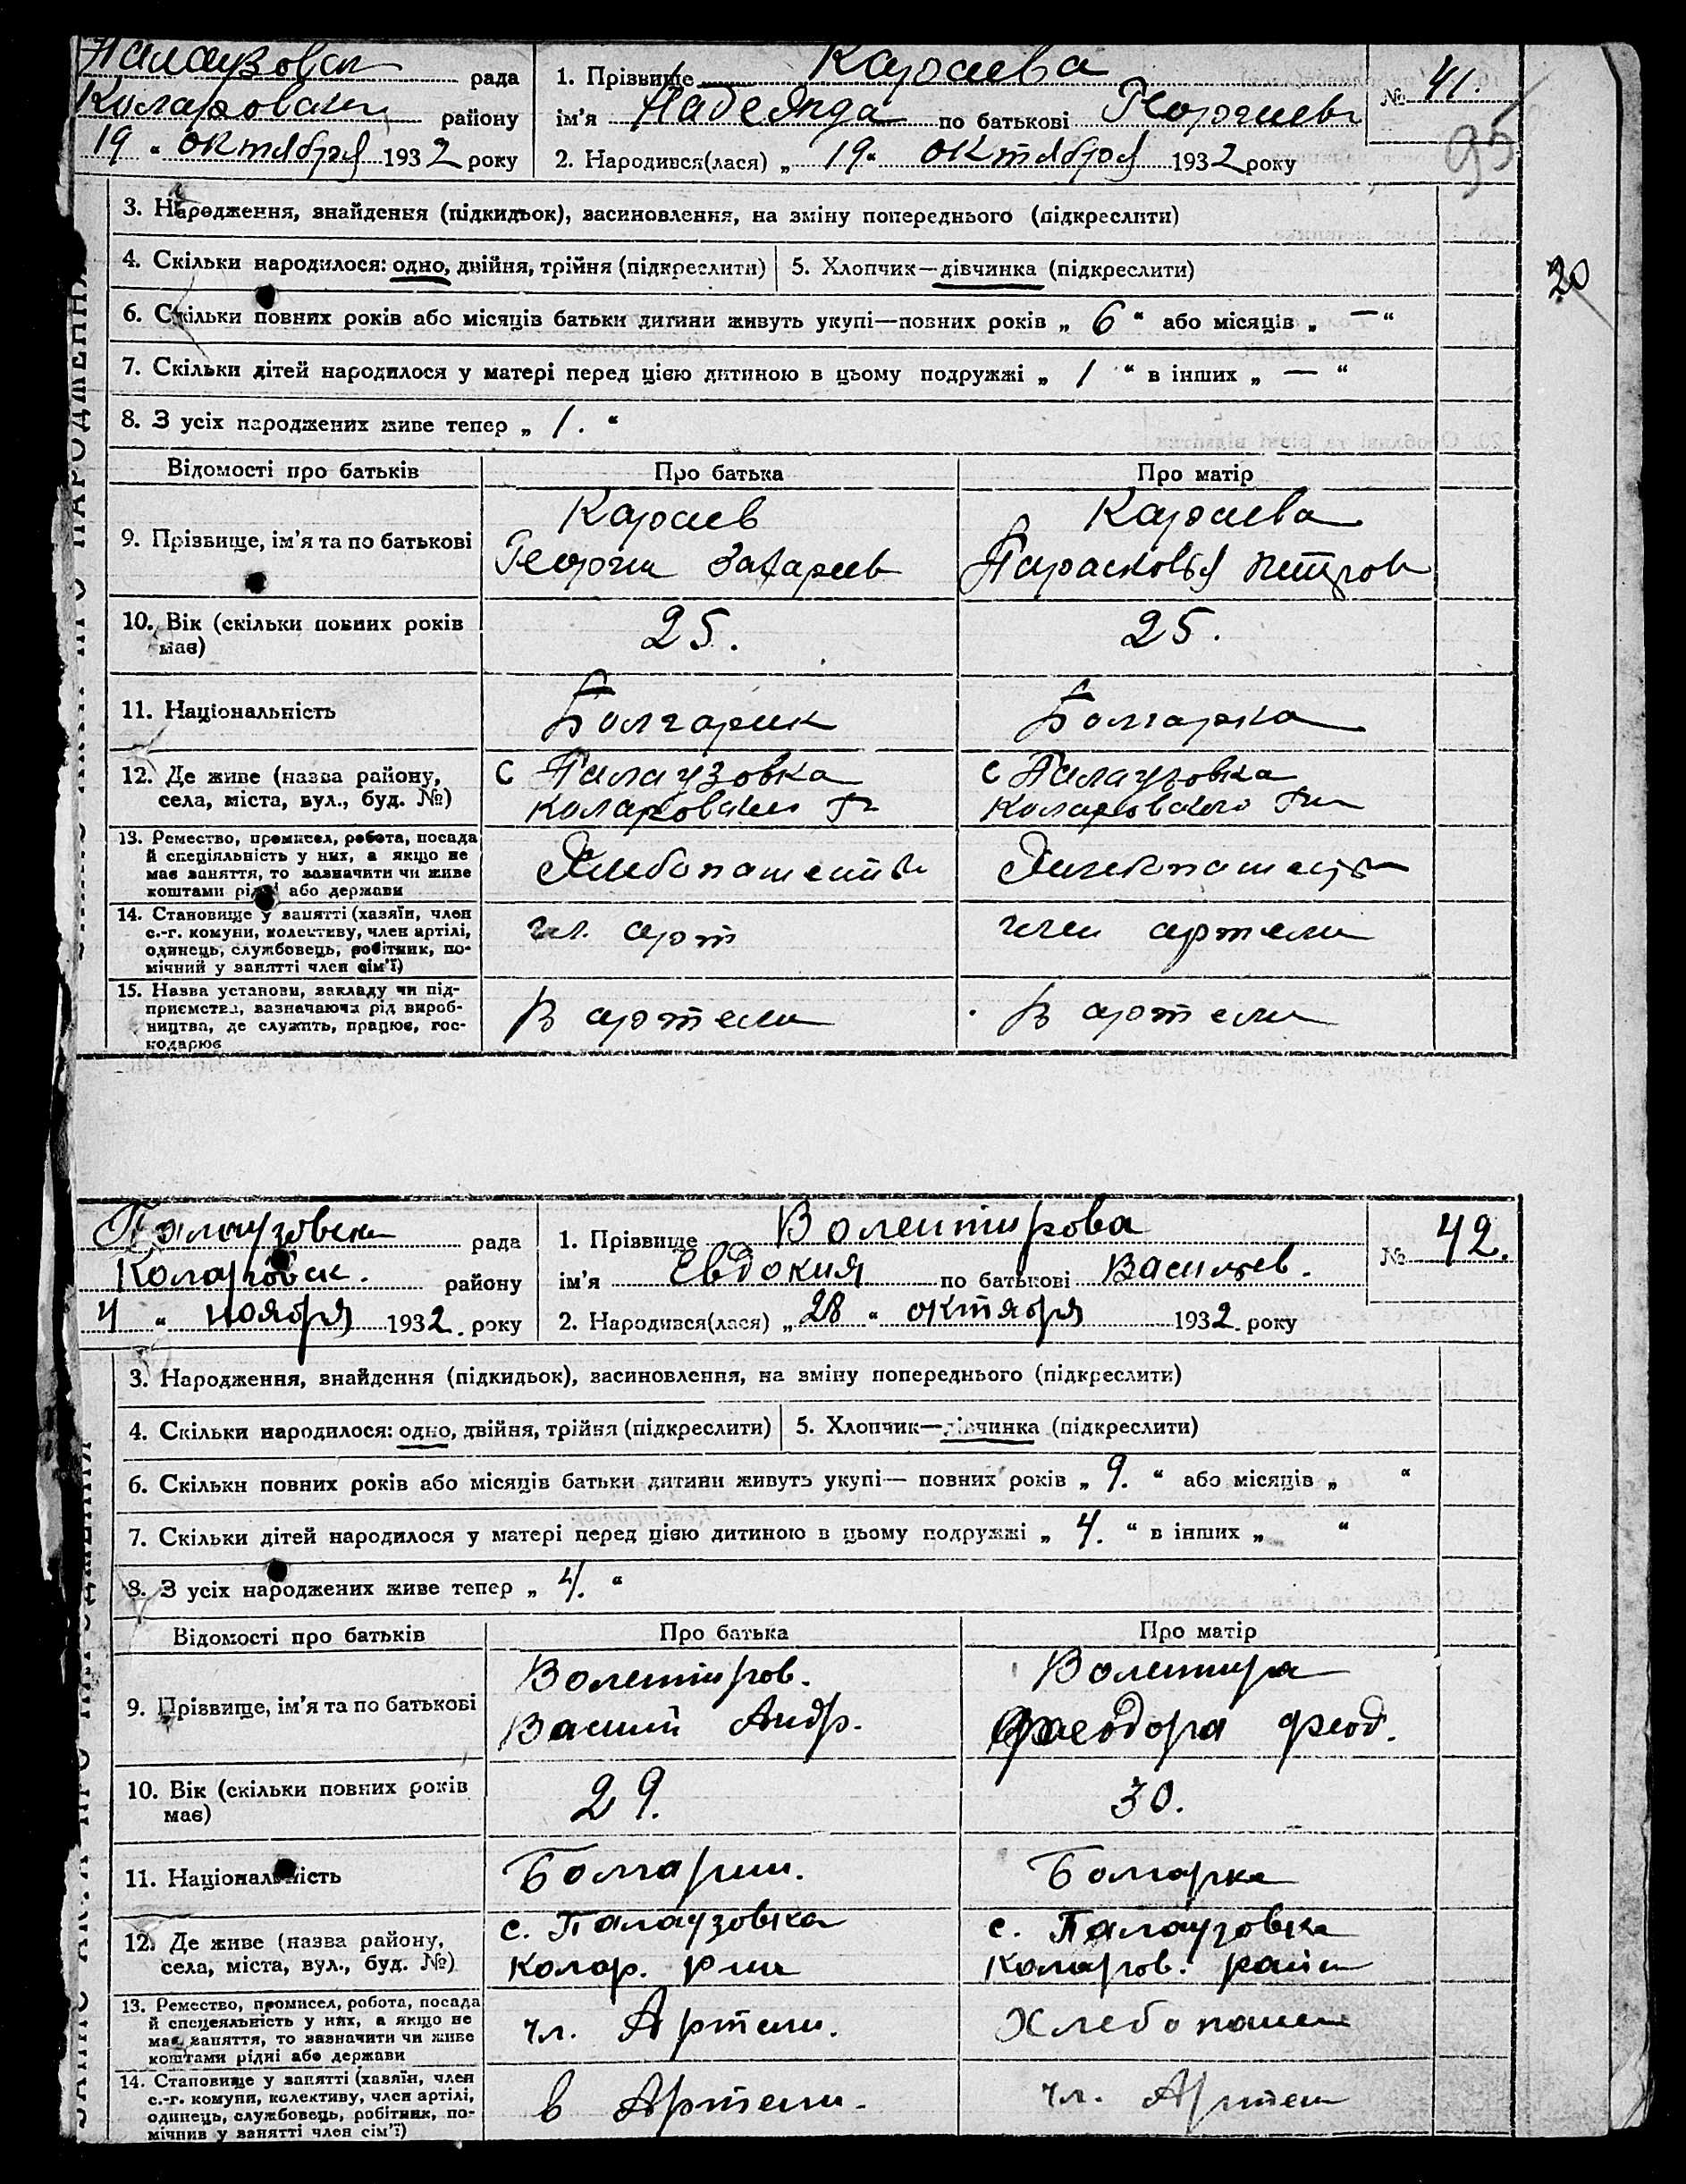 Палаузовск рада
Коларовский району
19 „ октября 1932 року
1. Прізвище Караева
ім'я Надежда по батькові Георгиевн
2. Народився(лася) „ 19 “ октября 1932 року
№ 41.
95
3. Народження, знайдення (підкидьок), засиновлення, на зміну попереднього (підкреслити)
4. Скільки народилося: одно, двійня, трійня (підкреслити) 5. Хлопчик—дівчинка (підкреслити)
20
6. Скільки повних років або місяців батьки дитини живуть укупі—повних років „ 6 “ або місяців „ — “
7. Скільки дітей народилося у матері перед цією дитиною в цьому подружжі „ 1 “ в інших „ — “
8. З усіх народжених живе тепер „ 1. “
Відомості про батьків Про батька Про матір
9. Прізвище, ім'я та по батькові
Караев
Георги Захарев
Караева
Парасковья Петров
10. Вік (скільки повних років має)
25. 25.
11. Національність Болгарин Болгарка
12. Де живе (назва району,
села, міста, вул., буд. №)
с Палаузовка
Коларовского Р-н
с Палаузовка
Коларовского Р-н
13. Ремество, промисел, робота, посада
й спеціяльність у них, а якщо не
має заняття, то зазначити чи живе
коштами рідні або держави
Хлебопашеств
Хлебопашеств
14. Становище у занятті (хазяїн, член
с.-г. комуни, колективу, член артілі,
одинець, службовець, робітник, по-
мічний у занятті член сім'ї)
чл. арт
член артели
15. Назва установи, закладу чи під-
приємства, вазначаючи рід вироб-
ництва, де служить, працює, гос-
подарює
В артели
В артели
Палаузовск рада
Коларовск. району
4 „ ноября 1932. року
1. Прізвище Волентирова
ім'я Евдокия по батькові Васильев.
2. Народився(лася) „ 28 “ октября 1932. року
№ 42.
3. Народження, знайдення (підкидьок), васиновлення, на зміну попереднього (підкреслити)
4. Скільки народилося: одно, двійня, трійня (підкреслити) 5. Хлопчик—дівчинка (підкреслити)
6. Скільки повних років або місяців батьки дитини живуть укупі— повних років „ 9. “ або місяців „ “
7. Скільки дітей народилося у матері перед цією дитиною в цьому подружжі „ 4. “ в інших „ “
8. З усіх народжених живе тепер „ 4. “
Відомості про батьків Про батька Про матір
9. Прізвище, ім'я та по батькові
Волентиров.
Василий Андр.
Волентира
Феодора Феод.
10. Вік (скільки повних років
має)
29. 30.
11. Національність Болгарин. Болгарка
12. Де живе (назва району,
села, міста, вул., буд. №)
с. Палаузовка
Колар. р-на
с. Палаузовка
Коларов. район
13. Ремество, промисел, робота, посада
й спецеяльність у них, а якщо не
має заняття, то зазначити чи живе
коштами рідні або держави
чл. Артели.
Хлебопаше
14. Становище у занятті (хазяїн, член
с.-г. комуни, колективу, член артілі,
одинець, службовець, робітник, по-
мічнив у занятті член сім'ї)
в Артели.
чл. Артели